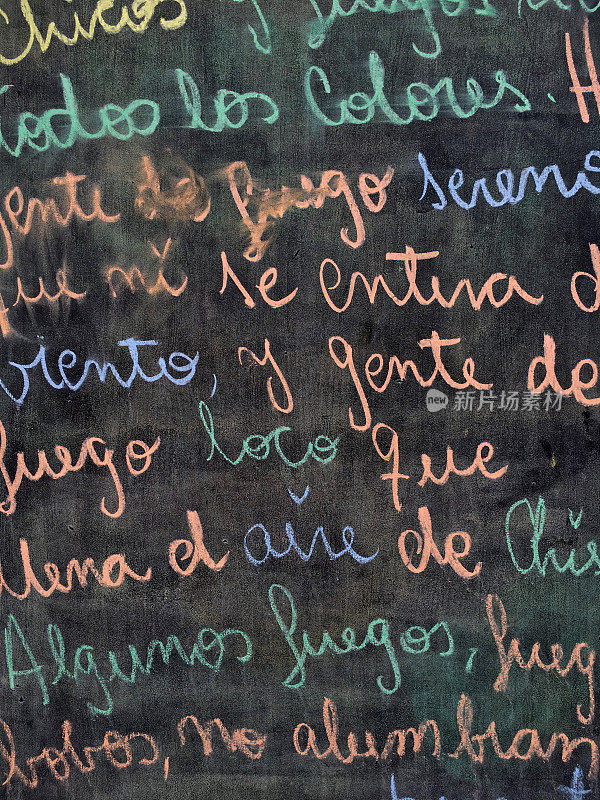 Chicos y fuegos
todos los Colores. H
gente de fuego sereno
que ni se entera d
viento, y gente de
fuego loco que
llena el aire de Chis
Algunos fuegos, fueg
bobos, no alumbran
新片场素材